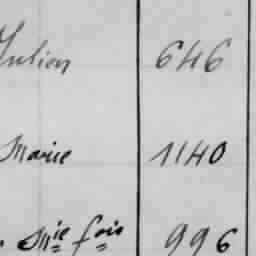 Julien 646
Marie 1140
Mie fois 996